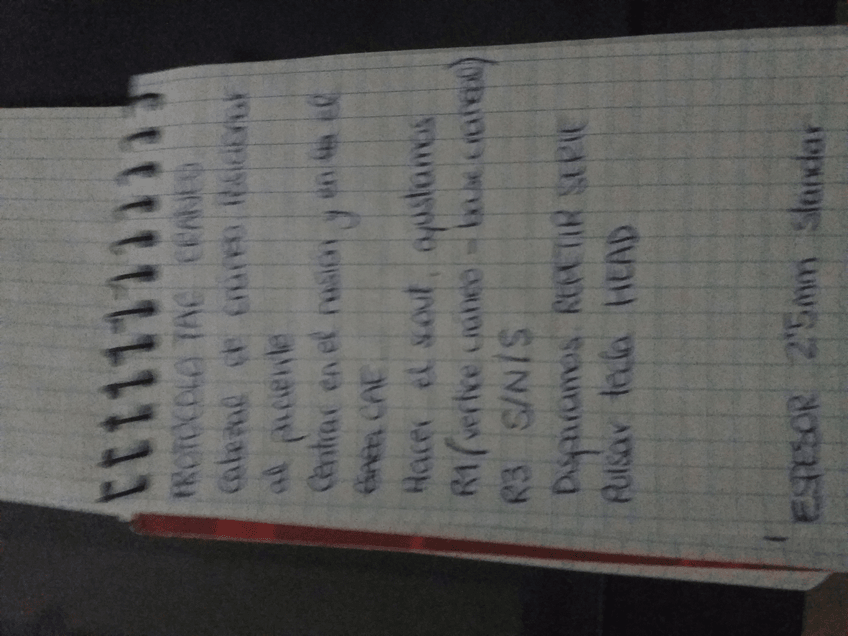 PROTOCOLO TAC CRANEO
Cabezal de cráneo. Posicionar
al paciente
Centrar en el nasion y en el
CAE
Hacer el scout, ajustamos
R1 (vertice craneo - base craneal)
R3 S/N/S
Disparamos. REPETIR SERIE
Pulsar tecla HEAD
ESPESOR 2'5mm standar